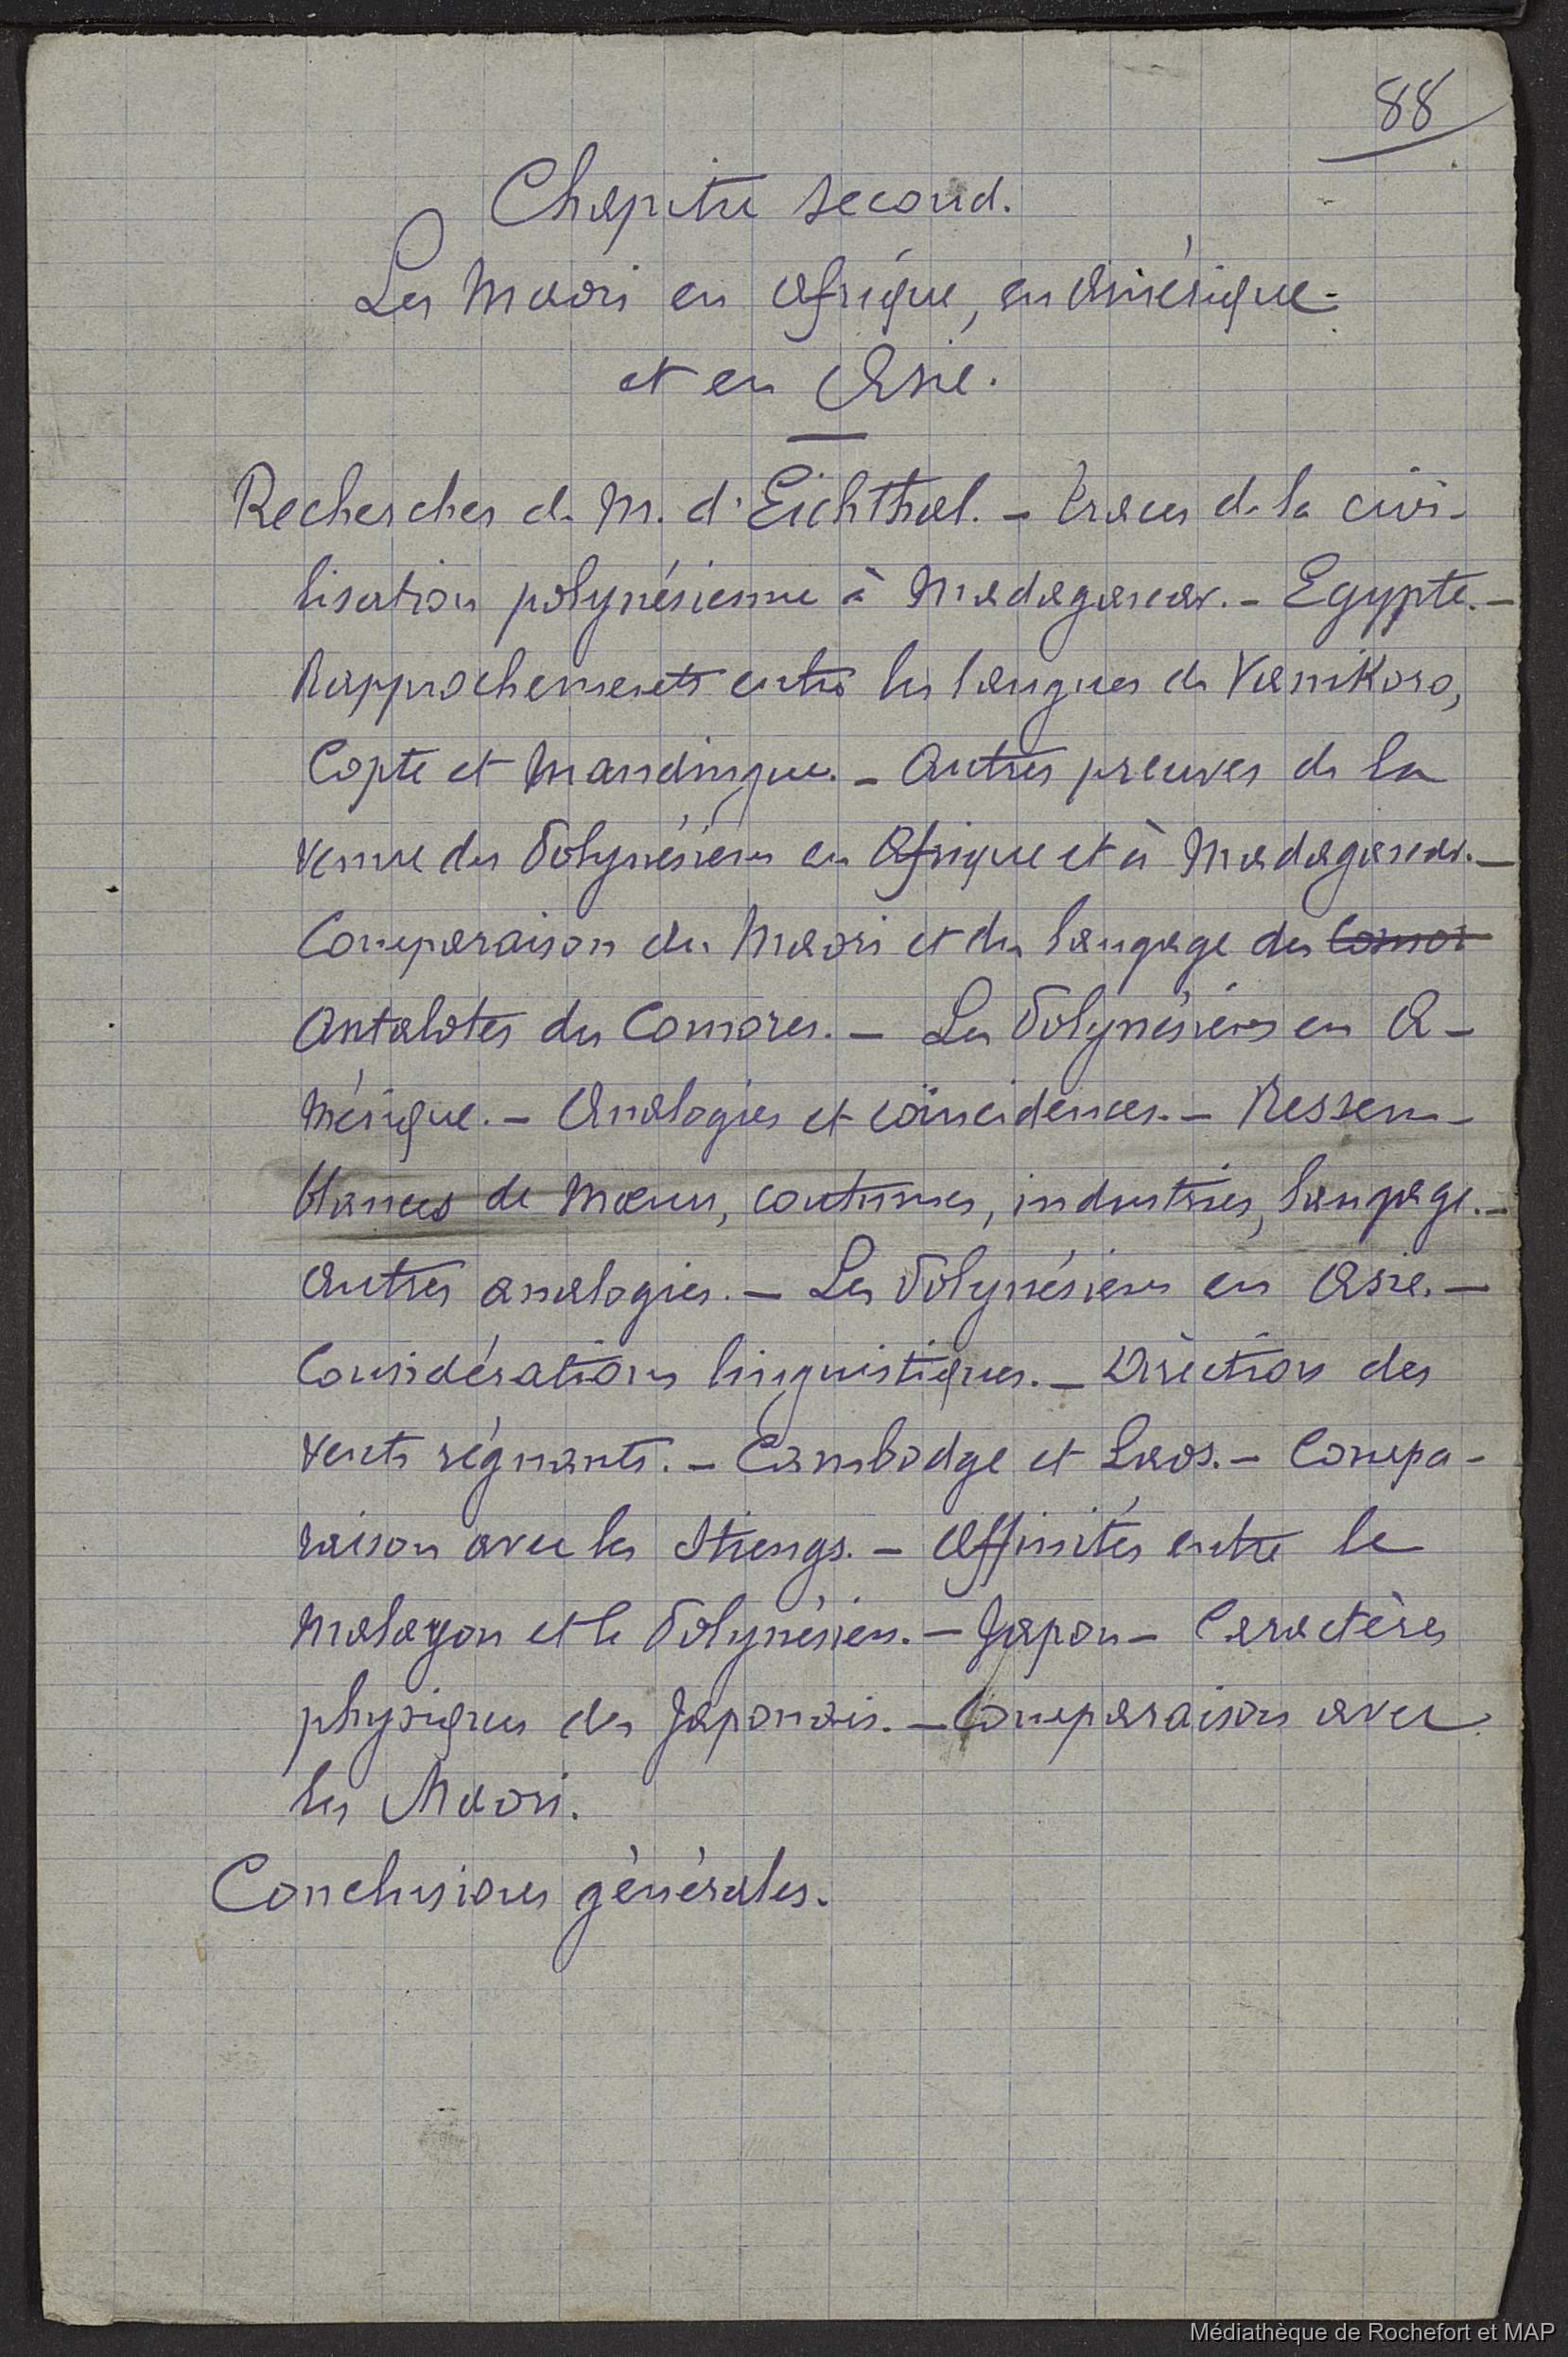 88
Chapitre second.
Les Maori en Afrique, en Amérique
et en Asie.
Recherches de M. d'Eichthal. — Traces de la civi-
lisation polynésienne à Madagascar. — Egypte. —
Rapprochements entre les langues de Vanikoro,
Copte et Mandingue. — Autres preuves de la
venue des Polynésiens en Afrique et à Madagascar. —
Comparaison du Maori et du langage des Comor
Antalotes des Comores. — Les Polynésiens en A-
mérique. — Analogies et coïncidences. — Ressem-
blances de mœurs, coutumes, industries, langage. —
Autres analogies. — Les Polynésiens en Asie. —
Considérations linguistiques. — Direction des
vents régnants. — Cambodge et Laos. — Compa-
raison avec les Stiengs. — Affinités entre le
Malayou et le Polynésien. — Japon — Caractères
physiques des Japonais. — Comparaison avec
les Maori.
Conclusions générales.
Médiathèque de Rochefort et MAP